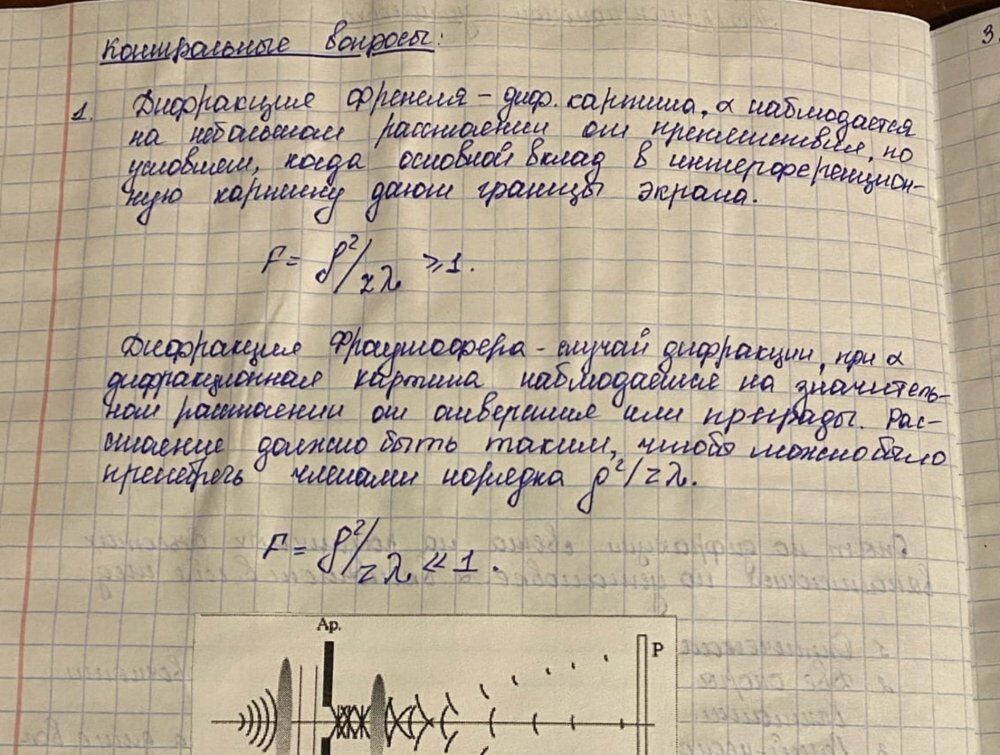 Контрольные вопросы:
3.
1. Дифракция Френеля – диф. картина, α наблюдается
на небольшом расстоянии от препятствия, по
условием, когда основной вклад в интерференцион-
ную картину дают границы экрана.
F = ρ²/zλ ⩾ 1.
Дифракция Фраунгофера - случай дифракции, при α
дифракционная картина наблюдается на значитель-
ном расстоянии от отверстия или преграды. Рас-
стояние должно быть таким, чтобы можно было
пренебречь членами порядка ρ²/zλ.
F = ρ²/zλ ≪ 1.
Ар.
P